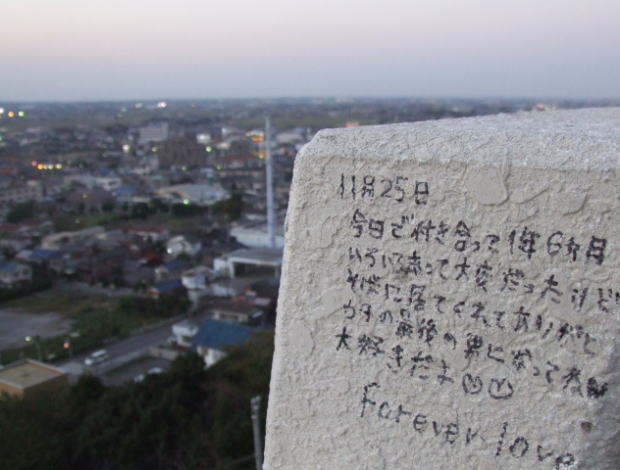 11月25日
今日で付き合って1年6か月
いろいろあって大変だったけど
そばに居てくれてありがと
ウチの最後の男になってネ
大好きだよ♡♡
Forever love